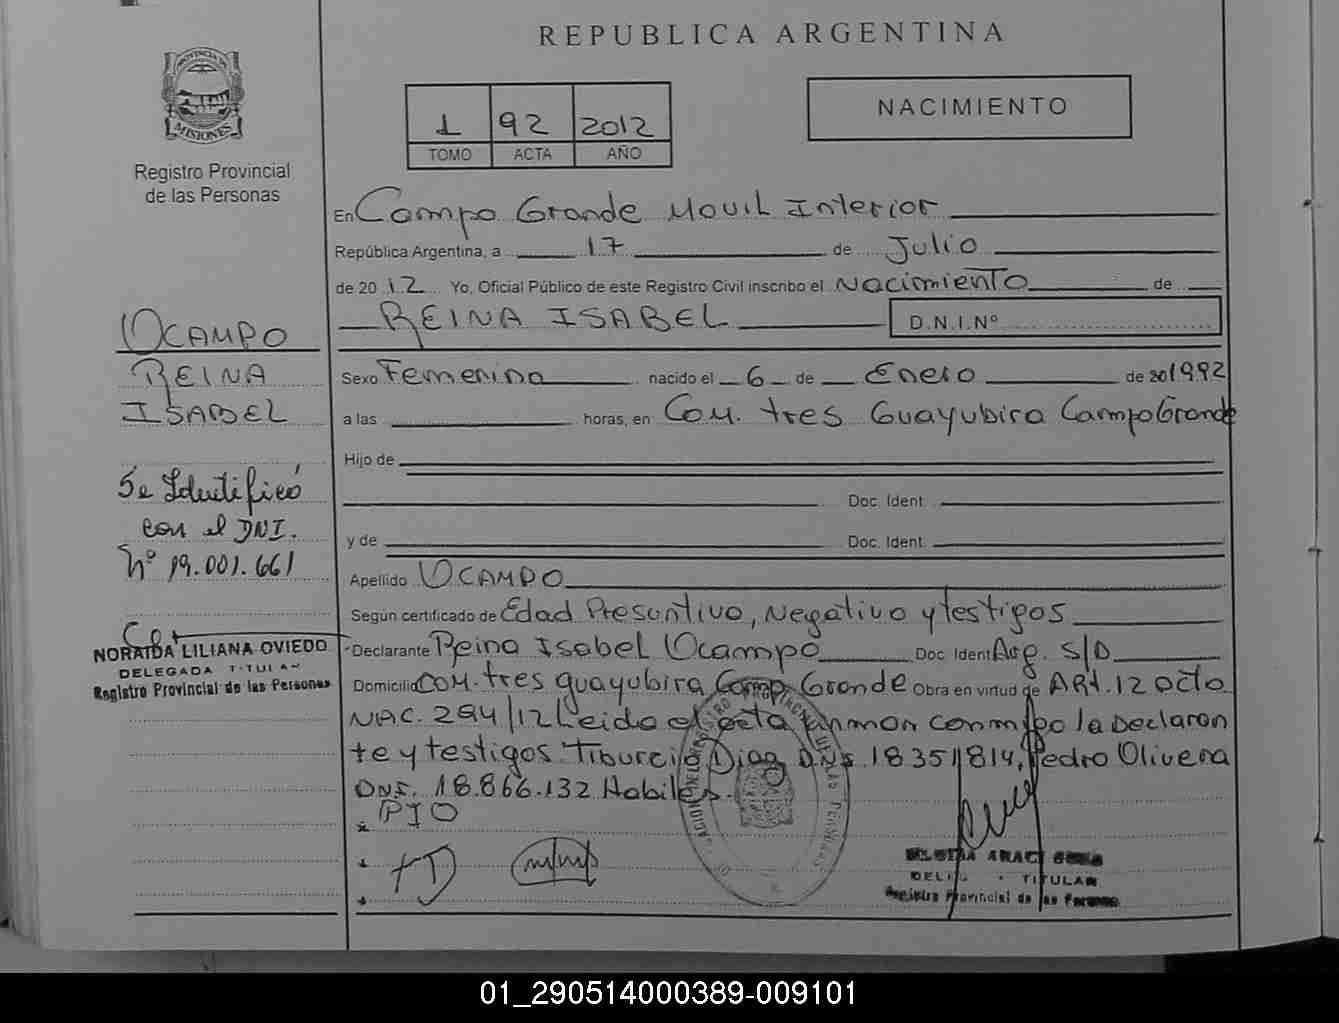 REPUBLICA ARGENTINA
PROVINCIA DE
MISIONES
Registro Provincial
de las Personas
1 92 2012
TOMO ACTA AÑO
NACIMIENTO
En Campo Grande Movil Interior
República Argentina, a 17 de Julio
de 2012 Yo, Oficial Público de este Registro Civil inscribo el Nacimiento de
REINA ISABEL D.N.I.Nº
Sexo Femenino nacido el 6 de Enero de 201992
a las horas, en Com. tres Guayubira Campo Grande
Hijo de
Doc. Ident.
y de Doc. Ident.
Apellido OCAMPO
Según certificado de Edad Presuntivo, Negativo y testigos
Declarante Reina Isabel Ocampo Doc. Ident Arg. S/D
Domicilio com. tres guayubira Camp. Grande Obra en virtud de ART. 12 Dcto
NAC. 294/12 Leido el acta conmigo la Declaran
te y testigos Tiburcio Diaz DNI. 18351814, Pedro Olivera
DNI. 18.866.132 Habiles.
PIO
TD
DELEG TITULAR
Registro Provincial de las Personas
OCAMPO
REINA
ISABEL
Se Identificó
con el DNI.
Nº 19.001.661
NORAIDA LILIANA OVIEDO
DELEGADA TITULAR
Registro Provincial de las Personas
01_290514000389-009101